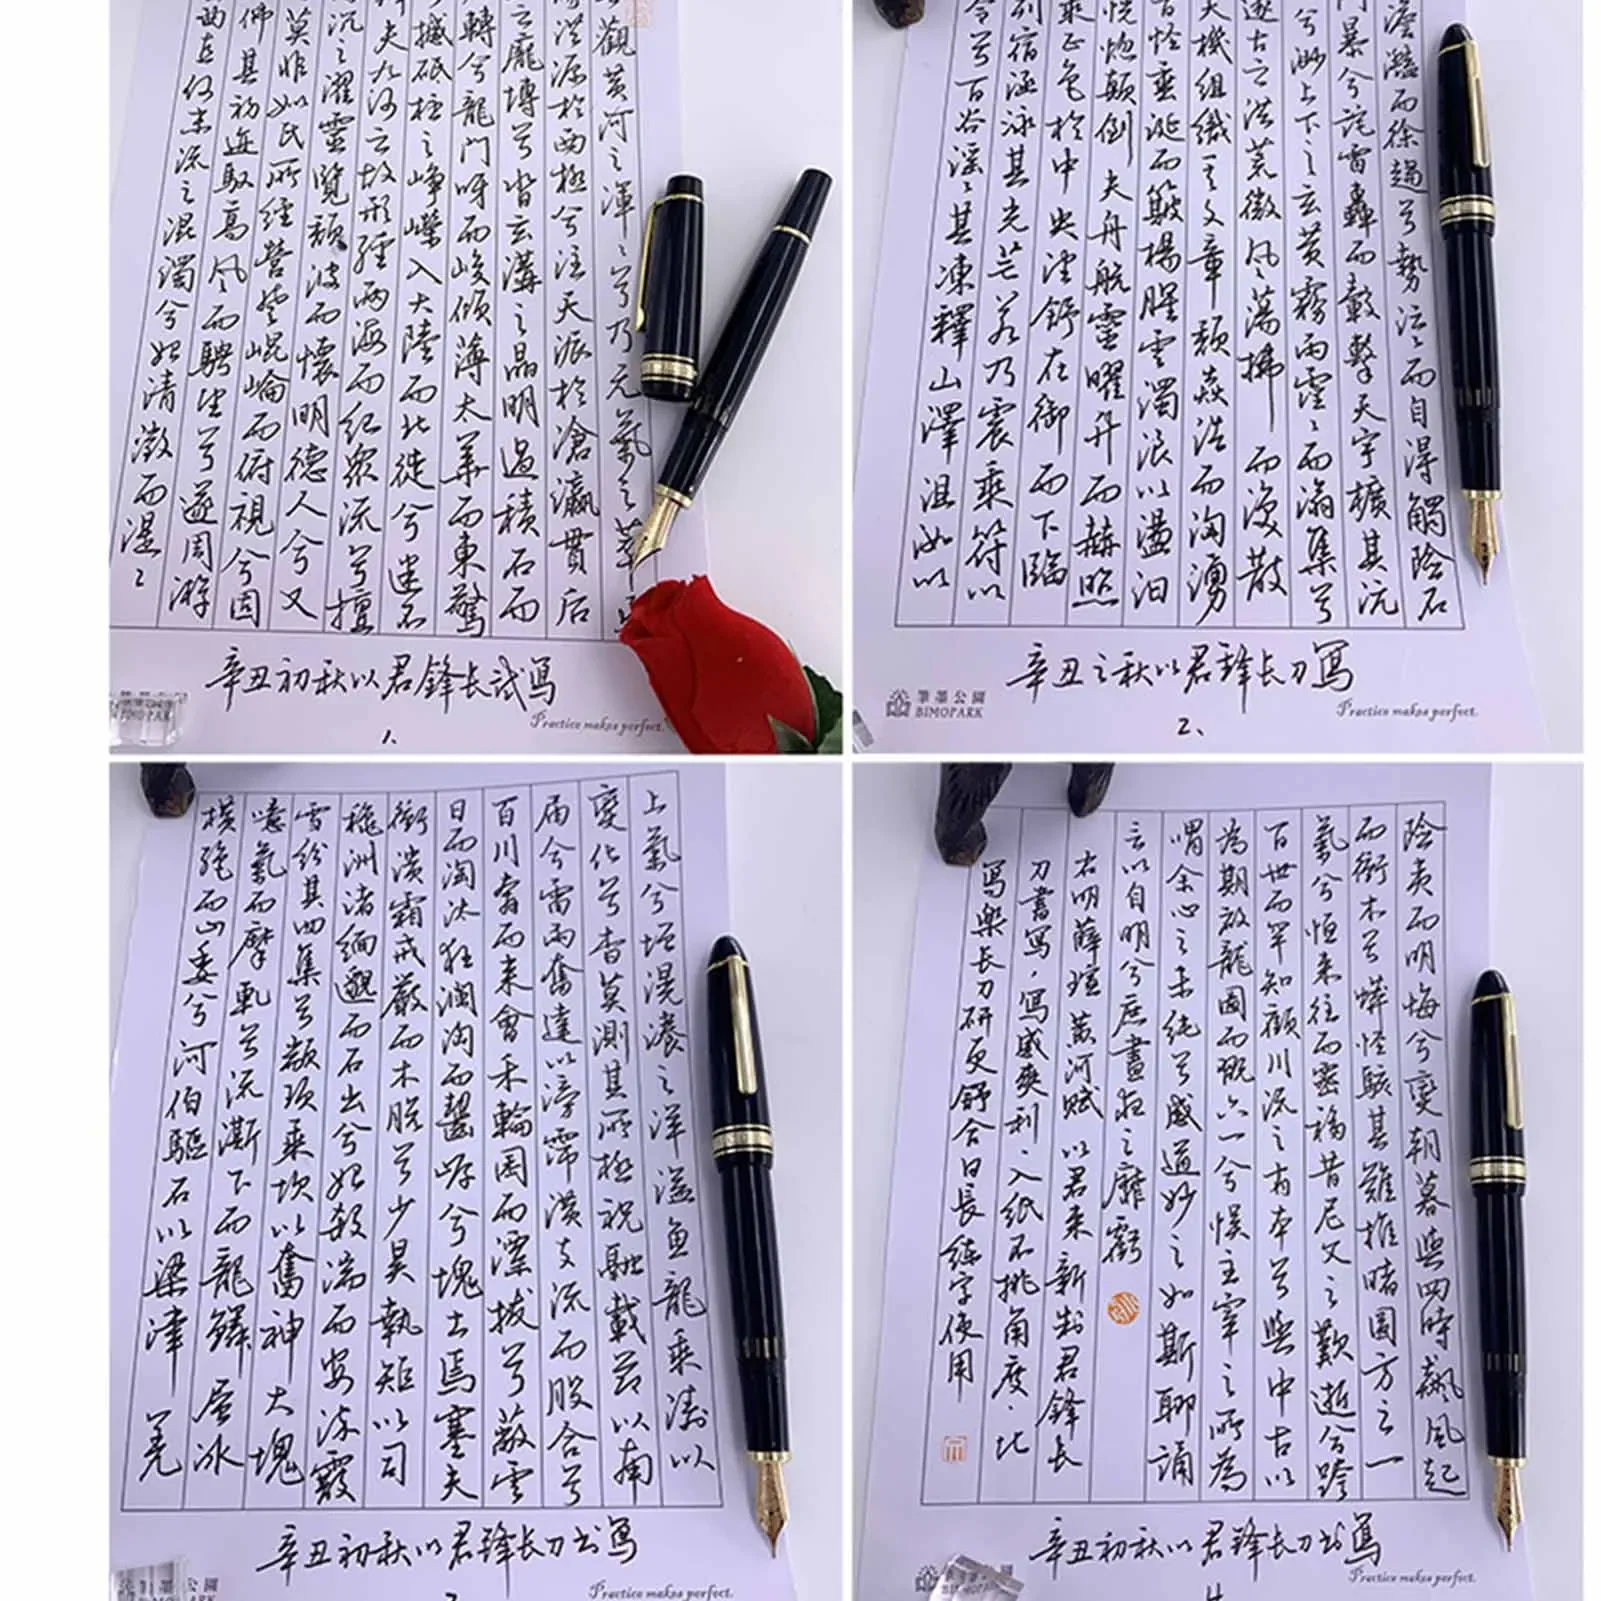 觀黃河之渾渾兮乃元氣之萃
洪源於西極兮注天派於滄瀛貫后
之龐博兮皆云溝之晶明過積石而
轉兮龍門呀而峻傾薄太華而東驚
撼砥柱之崢嶸入大陸而北徙兮迷不
夫九河之故形經兩海而紀眾流兮擅
沉之濯靈覽頹波而懷明德人兮又
莫非如氏所經營楚崐崙而俯視兮固
佛其初迹馭高風而騁望兮遂周游
西直何末流之混濁兮如清澂而湜〻
辛丑初秋以君鋒長試寫
筆墨公園
BIMOPARK
Practice makes perfect.
1、
澹灩而徐趨兮勢泣〻而自得觸險石
門暴兮詫雷轟而轂擊天宇擴其沆
兮渺上下之玄黃霧雨霏〻而滃集兮
邃古之洪荒微風蕩拂而渙散
天機組織之文章頹焱浩而淘湧
怪垂涎而簸楊腥雲濁浪以盪汩
恍惚顛倒夫舟航靈曜升而赫照
乘正色於中央望舒在御而下臨
列宿涵泳其光芒若乃震乘符以
令兮百谷滛〻其凍釋山澤沮洳以
辛丑之秋以君鋒長刀寫
筆墨公園
BIMOPARK
Practice makes perfect.
2、
上氣兮坱滉瀁之洋溢魚龍乘濤以
變化兮杳莫測其所極祝融載節以南
屆兮雷雨奮達以滂霈潢支流而股合兮
百川奔而來會禾輪囷而漂拔兮蔽雲
日而淘汰狂瀾洶而齧岸兮塊土焉塞夫
衝潰霜戒嚴而木脫兮少昊執矩以司
穐洲渚緬邈而石出兮如殺湍而安流霰
雪紛其四集兮顓頊乘坎以奮神大塊
噫氣而摩軋兮流澌下而龍鱗層冰
橫絕而山委兮河伯驅石以梁津羌
辛丑初秋以君鋒長刀書寫
筆墨公園
BIMOPARK
Practice makes perfect.
險夷而明晦兮變朝暮與四時飆風起
而衝木兮蟒怪駭其難推睹圓方之一
氣兮恒來往而密移昔尼父之歎逝兮跨
百世而罕知顧川流之有本兮與中古以
為期放龍圖而覘六一兮悮主宰之所為
喟余心之未純兮感道妙之如斯聊誦
言以自明兮庶晝夜之靡虧
右明薛瑄黃河賦以君來新制君鋒長
刀書寫，寫感爽利，入紙不挑角度，比
寫樂長刀研更舒合日長練字使用
辛丑初秋以君鋒長刀書寫
BIMOPARK
Practice makes perfect.